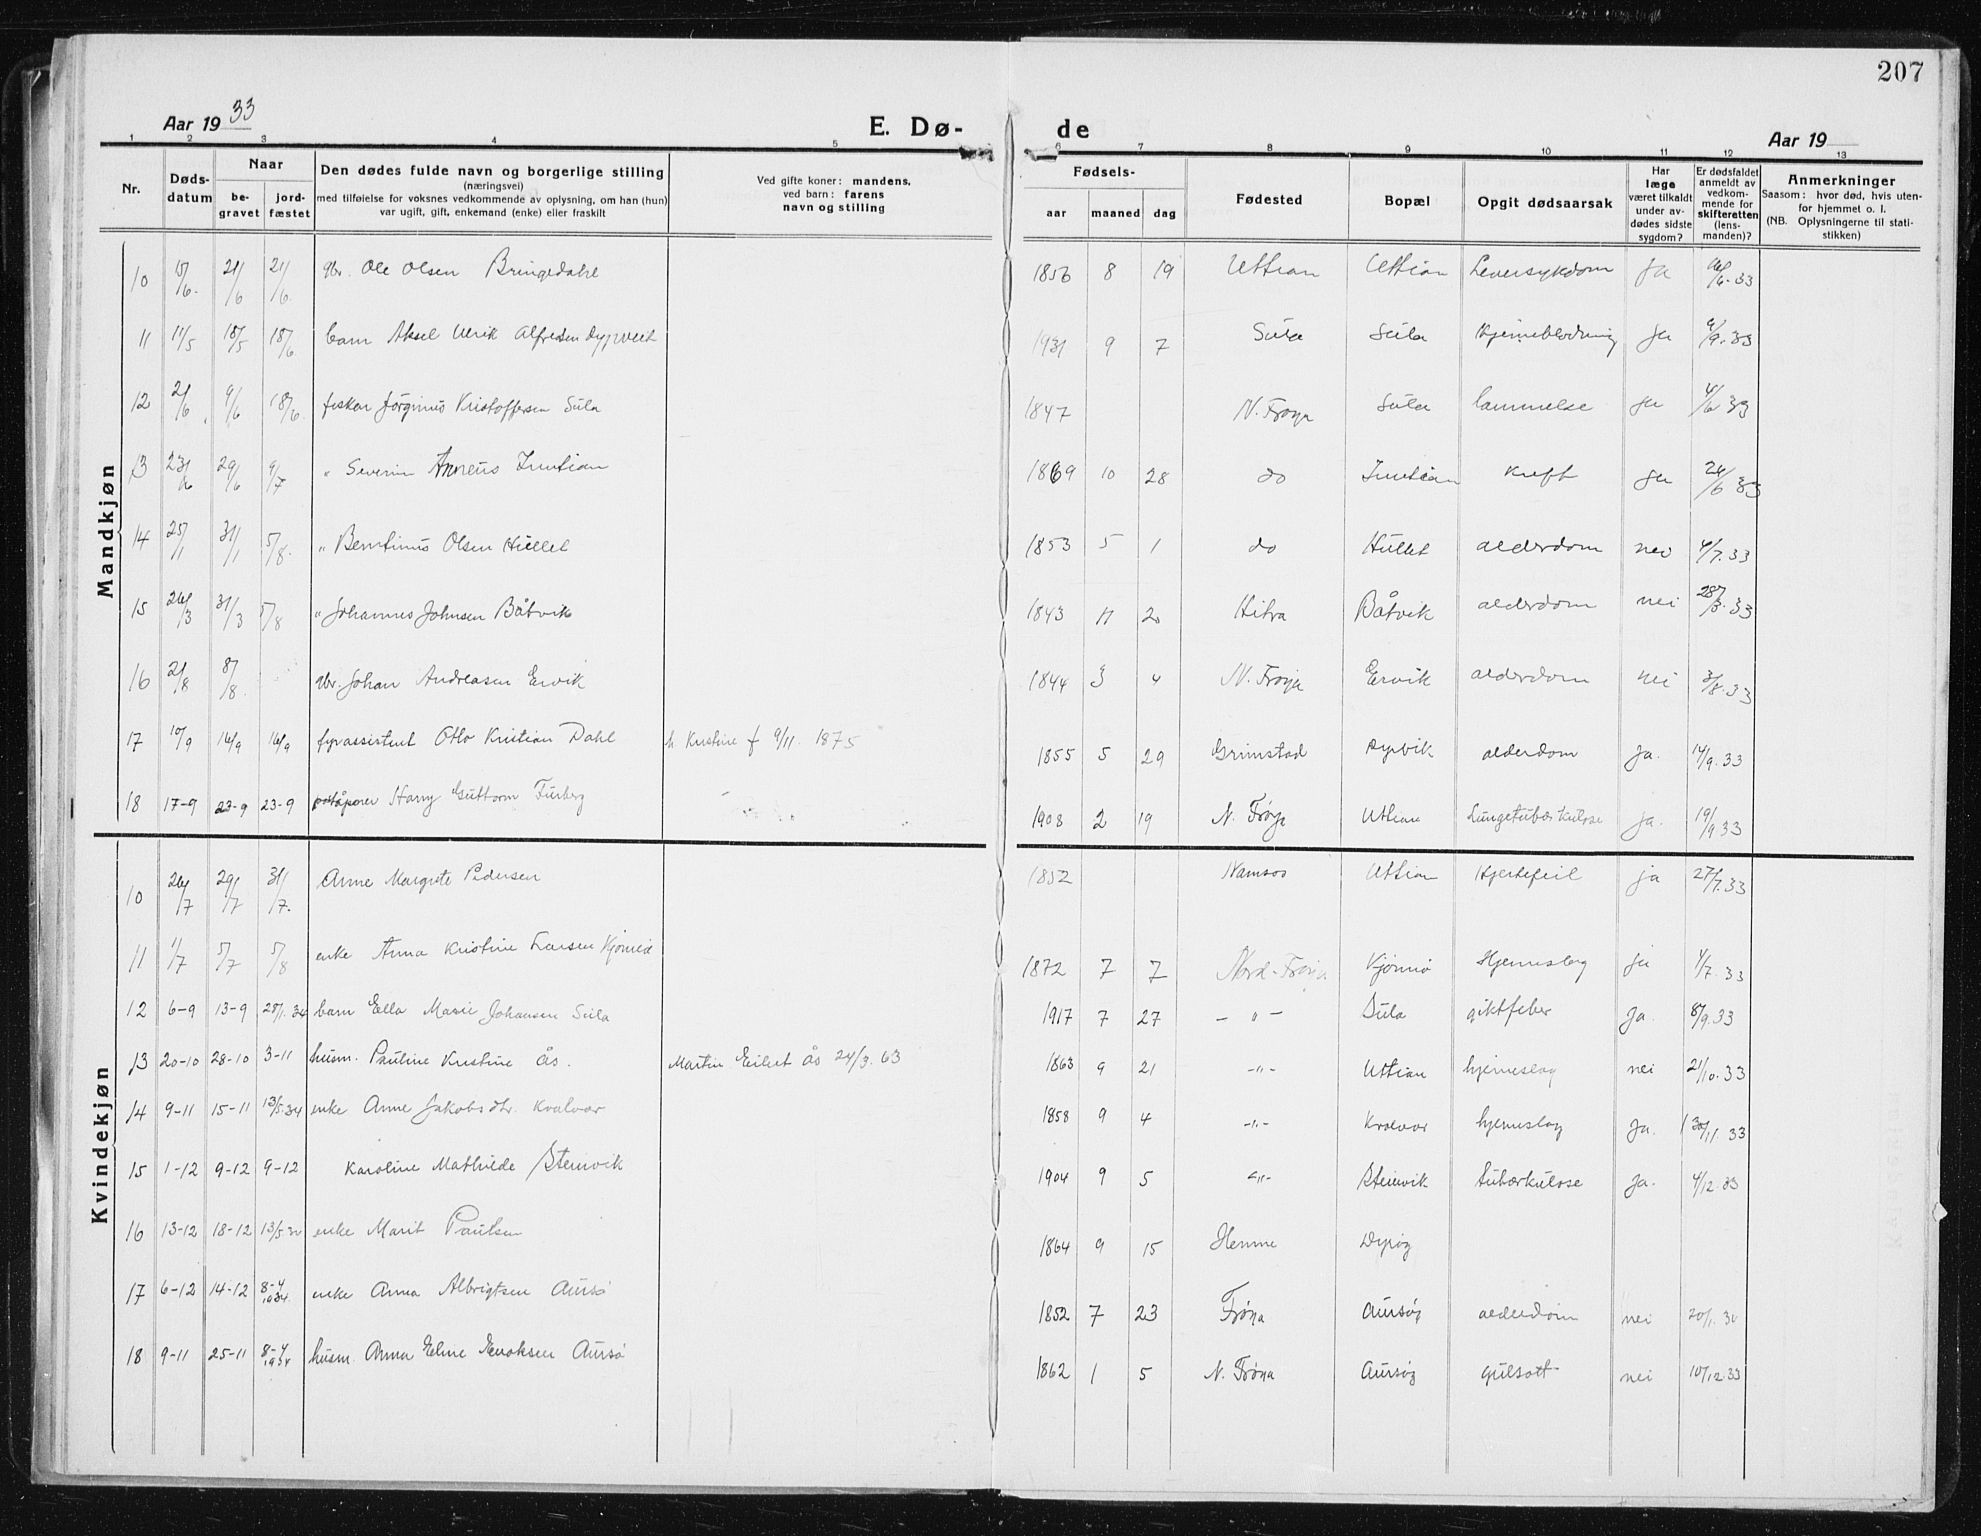 207
Aar 1933
E. Dø- de
Aar 19
1 2 3 4 5 6 7 8 9 10 11 12 13
Nr. Døds-datum Naar be-gravet jord-fæstet
Den dødes fulde navn og borgerlige stilling
(næringsvei)
med tilføielse for voksnes vedkommende av oplysning, om han (hun)
var ugift, gift, enkemand (enke) eller fraskilt
Ved gifte koner: mandens,
ved barn: farens
navn og stilling
Fødsels-
aar maaned dag
Fødested
Bopæl
Opgit dødsaarsak
Har læge været tilkaldt under av-dødes sidste sygdom?
Er dødsfaldet anmeldt av vedkom-mende for skifteretten (lens-manden)?
Anmerkninger
Saasom: hvor død, hvis uten-
for hjemmet o. l.
(NB. Oplysningerne til stati-
stikken)
Mandkjøn
10 15/6. 21/6 21/6. gbr. Ole Olsen Bringedahl 1856 8 19 Uttian Uttian Leversykdom Ja
11 11/5 18/5 18/6 barn Aksel Ulrik Alfredsen Dyrvik 1931 9 7 Sula Sula Hjerneblødning Ja
12 2/6 9/6 18/6. fisker Jørginus Kristoffersen Sula 1847 N. Frøya Sula lammelse Ja 4/6 33
13 23/6 29/6 9/7 " Severin Anneus Inntian 1869 10 28 do Inntian Kreft Ja 24/6 33
14 25/1 31/1 5/8. " Berntinus Olsen Hullet 1853 5 1 do Hullet alderdom nei 4/7. 33
15 26/3 31/3 5/8 " Johannes Johnsen Båtvik 1843 11 20 Hitra Båtvik alderdom nei 28/3. 33
16 2/8 8/8. gbr. Johan Andreasen Ervik 1844 3 4 N. Frøya Ervik alderdom nei 3/8. 33
17 10/9 16/9 16/9 fyrassistent Otto Kristian Dahl h. Kristine f 9/11. 1875 1855 5 29 Grimstad Dyrvik alderdom Ja. 14/9. 33
18 17-9 23-9 23-9 Harry Guttorm Furberg 1908 2 19 N. Frøya Uttian Lungetuberkulose Ja. 19/9 33
Kvindekjøn
10 26/7 29/7 31/7. Anne Margrete Pedersen 1852 Namsos Uttian Hjertefeil ja 27/7. 33
11 1/7 5/7 5/8 enke Anna Kristine Larsen Kjønnø 1872 7 7 Nord-Frøya Kjønnø Hjerneslag Ja 4/7. 33
12 6-9 13-9 28/1. 34 barn Ella Marie Johansen Sula 1917 7 27 - " - Sula giktfeber Ja. 8/9. 33
13 20-10 28-10 3-11 husm. Pauline Kristine Ås. Martin Eilert Ås 24/3. 63 1863 9 21 -"- Uttian hjerneslag nei 21/10. 33
14 9-11 15-11 13/5. 34 enke Anne Jakobsdtr. Kvalvær 1858 9 4 -"- Kvalvær hjerneslag Ja. 30/11. 33
15 1-12 9-12 9-12 Karoline Mathilde Steinvik 1904 9 5 -"- Steinvik Tubærkulose Ja. 4/12. 33
16 13-12 18-12 13/5 34 enke Marit Paulsen 1864 9 15 Hemne Dyrøy
17 6-12 14-12 8-4 1934. enke Anna Albrigtsen Aursø 1852 7 23 Frøya Aursøy alderdom nei 20/1. 34
18 9-11 25-11 8-4 1934 husm. Anna Eline Enoksen Aursø 1862 1 5 N. Frøya Aursøy gulsott nei 10/12. 33